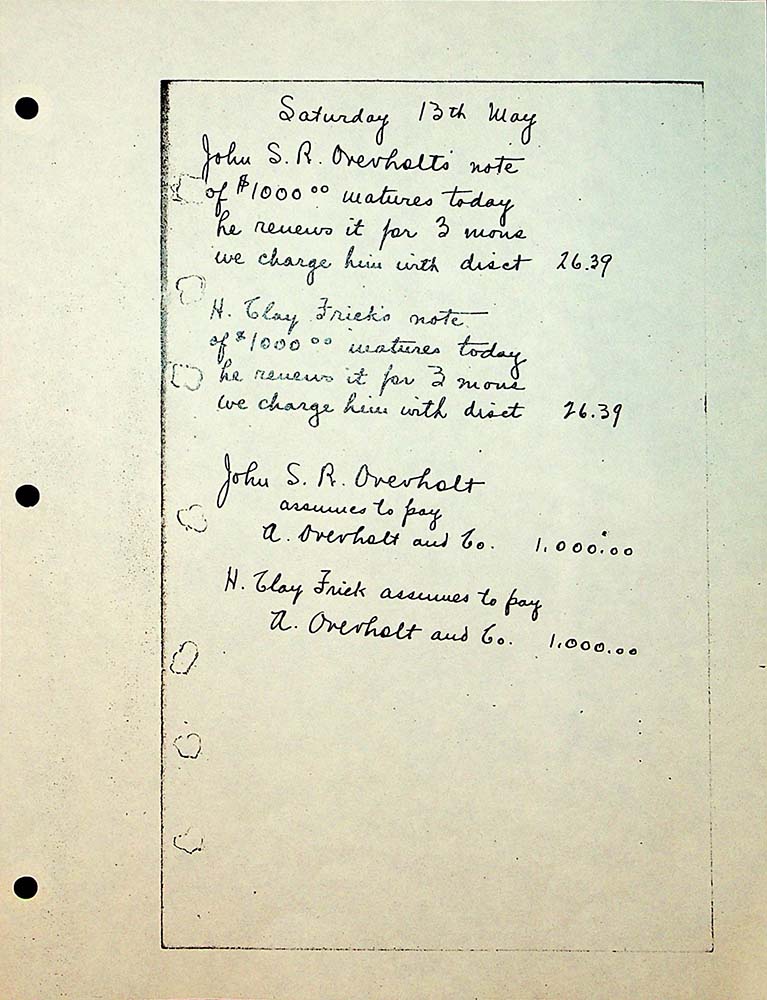 Saturday 13th May
John S. R. Overholts note
of $1000 00 matures today
he renews it for 3 mons
we charge him with disct 26.39
H. Clay Frick's note
of $1000 00 matures today
he renews it for 3 mons
we charge him with disct 26.39
John S. R. Overholt
assumes to pay
A. Overholt and Co. 1,000.00
H. Clay Frick assumes to pay
A. Overholt and Co. 1,000.00